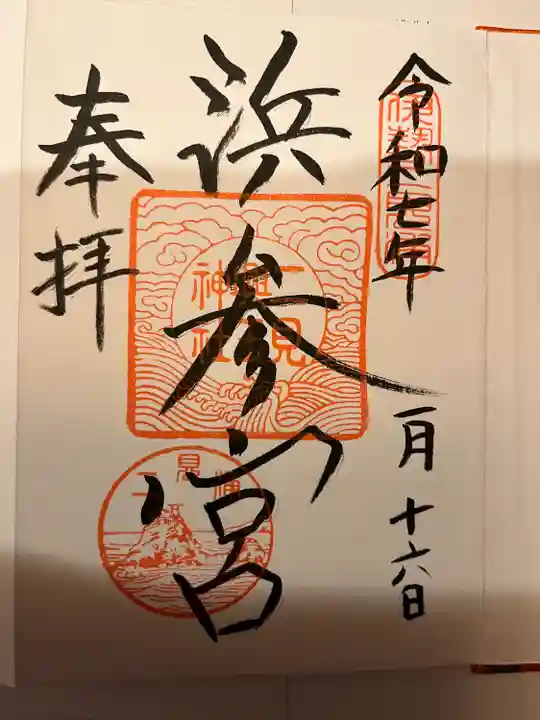 令和七年 一月十六日
浜参宮
奉拝
二見
興玉
神社
二見浦